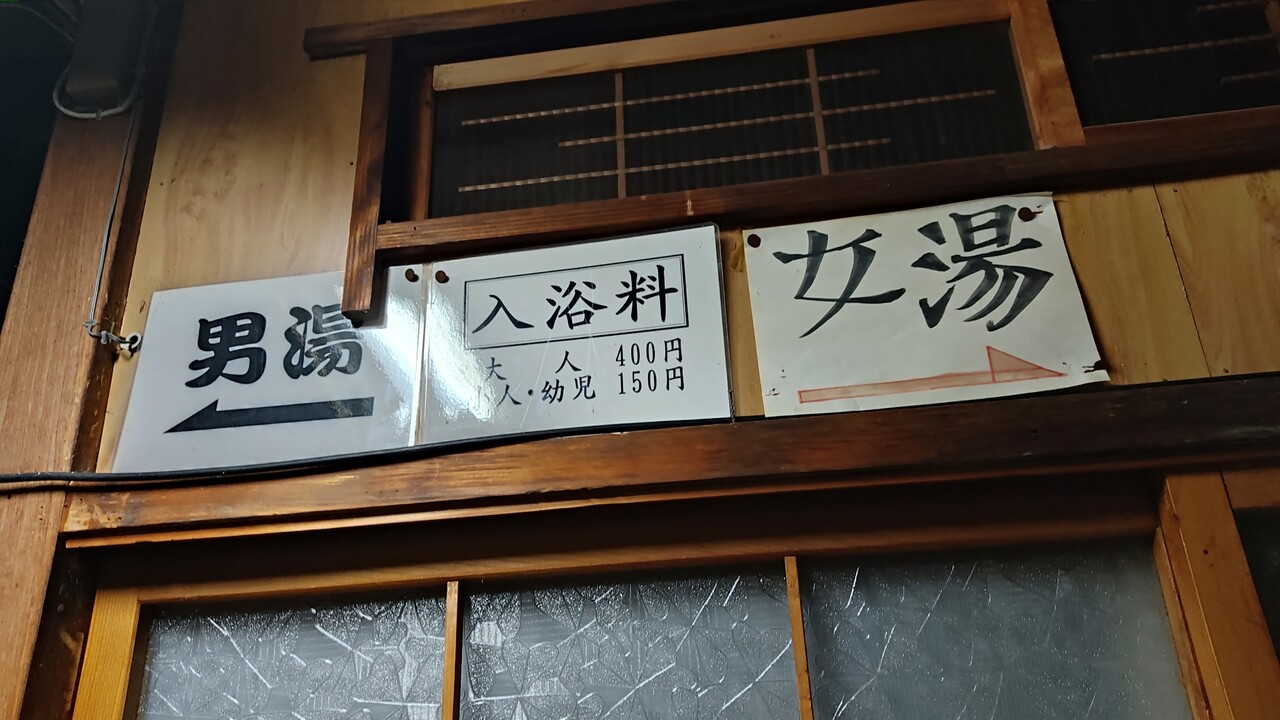 男湯
入浴料
大 人 400円
人・幼児 150円
女湯